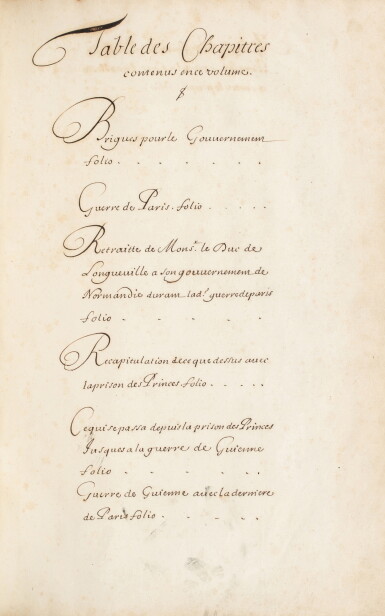 Table des Chapitres
contenus ence volume.
Brigues pour le Gouvernement
folio . . . . . . .
Guerre de Paris. folio . . . . .
Retraitte de Monsr. le Duc de
Longueville a son gouvernement de
Normandie durant lad.e guerre de paris
folio . . . . .
Recapitulation de ce que dessus avec
la prison des Princes. folio . . . . .
Ce qui se passa depuis la prison des Princes
Jusques a la guerre de Guienne
folio . . . . .
Guerre de Guienne avec la derniere
de Paris folio . . . . .